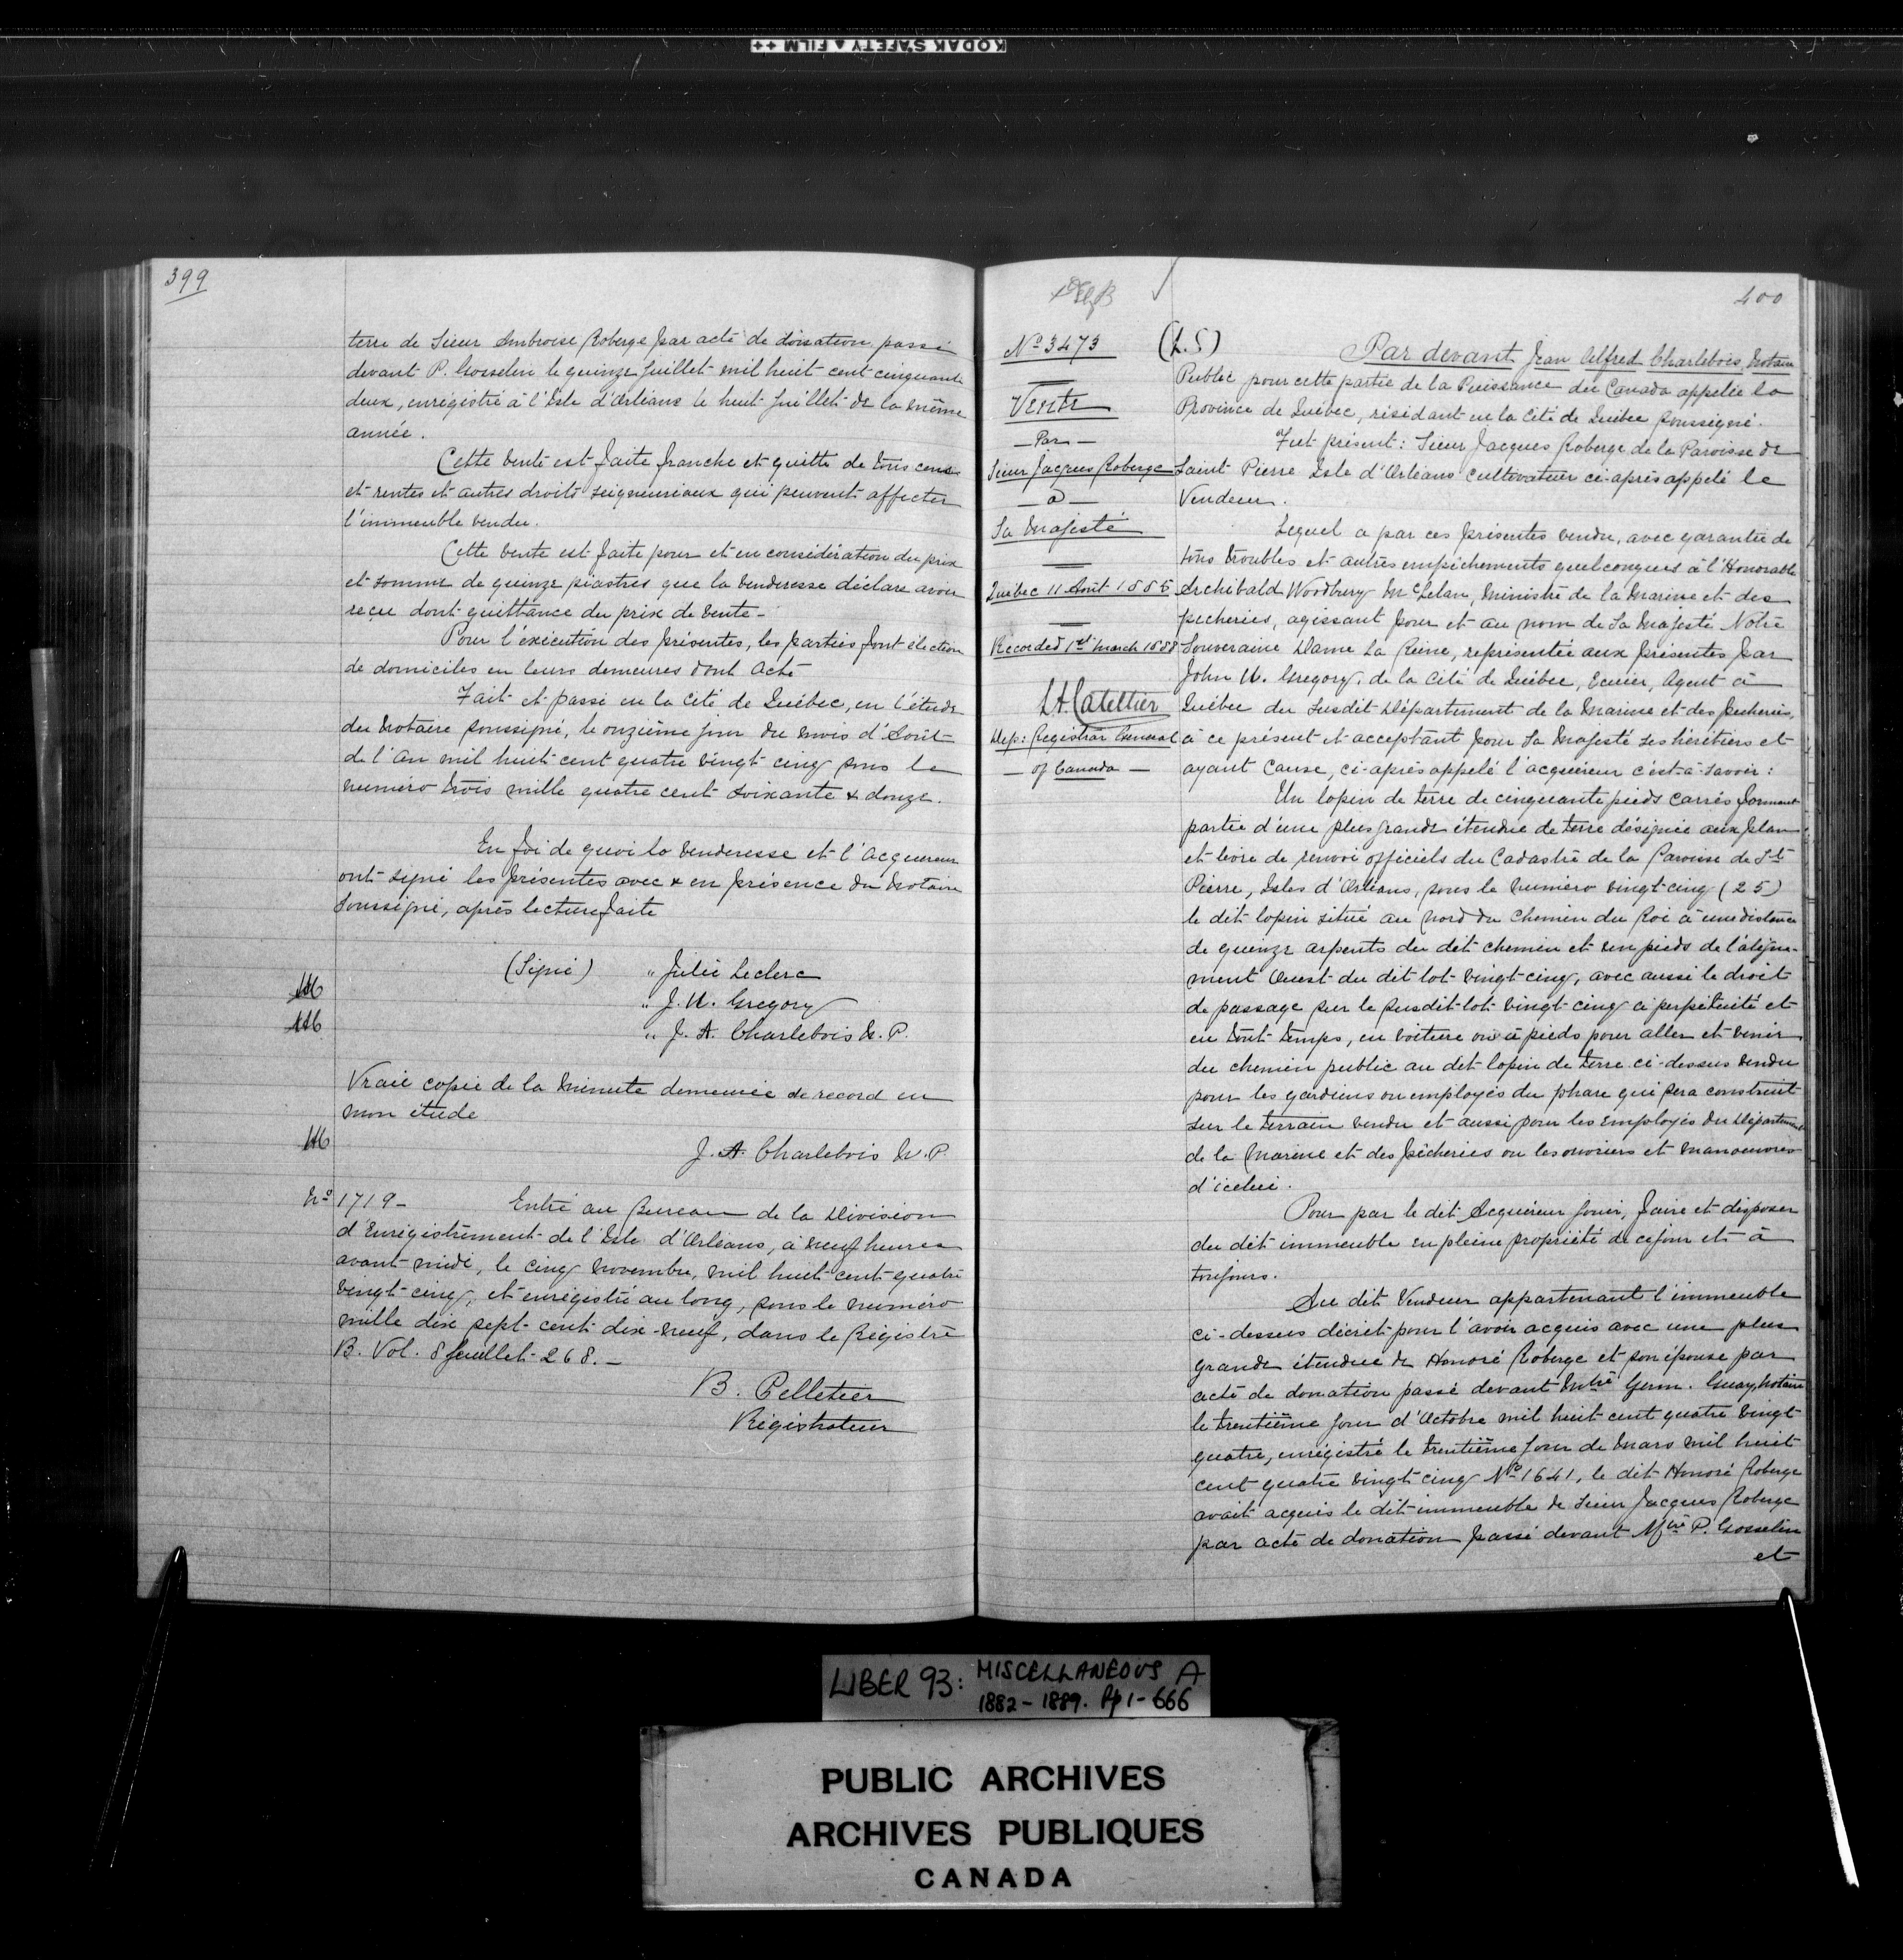 KODAK SAFETY ▲ FILM ++
399
terre de Sieur Ambroise Roberge par acte de donation passé
devant P. Gosselin le quinze juillet mil huit cent cinquante
deux, enrégistré à l'Isle d'Orléans le huit juillet de la même
année.
Cette vente est faite franche et quitte de tous cens
et rentes et autres droits seigneuriaux qui peuvent affecter
l'immeuble vendu.
Cette vente est faite pour et en considération du prix
et somme de quinze piastres que la venderesse déclare avoir
reçu dont quittance du prix de vente -
Pour l'exécution des présentes, les parties font élection
de domiciles en leurs demeures dont Acte
Fait et passé en la Cité de Québec, en l'étude
du Notaire soussigné, le onzième jour du mois d'Août
de l'An mil huit cent quatre vingt cinq sous le
numéro trois mille quatre cent soixante & douze.
En foi de quoi la venderesse et l'acquereur
ont signé les présentes avec & en présence du Notaire
soussigné, après lecture faite
(Signé) " Julie Leclerc
" J. U. Gregory
" J. A. Charlebois N. P.
Vraie copie de la minute demeurée de record en
mon étude
J. A. Charlebois N. P.
No 1719 - Entré au Bureau de la Division
d'Enregistrement de l'Isle d'Orléans, à neuf heures
avant midi, le cinq Novembre, mil huit cent quatre
vingt cinq, et enrégistré au long, sous le numéro
mille dix sept cent dix-neuf, dans le Régistre
B. Vol. 8 feuillet 268. -
B. Pelletier
Régistrateur
400
No 3473
Vente
- Par -
Sieur Jacques Roberge
- à -
Sa Majesté
Québec 11 Août 1885
Recorded 1st March 1888
L A Catellier
Dep: Registrar General
- of Canada -
(L.S)
Par devant Jean Alfred Charlebois, Notaire
Public pour cette partie de la Puissance du Canada appelée la
Province de Québec, résidant en la Cité de Québec soussigné.
Fut présent: Sieur Jacques Roberge de la Paroisse de
Saint Pierre Isle d'Orléans Cultivateur ci-après appelé le
Vendeur.
Lequel a par ces présentes vendu, avec garantie de
tous troubles et autres empêchements quelconques à l'Honorable
Archibald Woodbury McLelan, Ministre de la Marine et des
pecheries, agissant pour et au nom de Sa Majesté Notre
Souveraine Dame La Reine, représentée aux présentes par
John U. Gregory, de la Cité de Québec, Ecuier, Agent à
Québec du susdit Département de la Marine et des pecheries,
à ce présent et acceptant pour Sa Majesté ses héritiers et
ayant Cause, ci-après appelé l'acquéreur c'est-à-savoir:
Un lopin de terre de cinquante pieds carrés formant
partie d'une plus grande étendue de terre désignée aux plan
et livre de renvoi officiels du Cadastre de la Paroisse de St
Pierre, Isles d'Orléans, sous le numéro vingt-cinq (25)
le dit lopin situé au Nord du Chemin du Roi à une distance
de quinze arpents du dit chemin et six pieds de l'aligne-
ment Ouest du dit lot vingt-cinq, avec aussi le droit
de passage sur le susdit lot vingt cinq à perpétuité et
en tout temps, en voiture ou à pieds pour aller et venir
du chemin public au dit lopin de terre ci-dessus vendu
pour les gardiens ou employés du phare qui sera construit
sur le terrain vendu et aussi pour les Employés du Département
de la Marine et des Pêcheries ou les ouvriers et manoeuvres
d'icelui.
Pour par le dit Acquéreur jouir, faire et disposer
du dit immeuble en pleine propriété de ce jour et à
toujours.
Au dit Vendeur appartenant l'immeuble
ci-dessus décrit pour l'avoir acquis avec une plus
grande étendue de Honoré Roberge et son épouse par
acte de donation passé devant Mtre Germ. Guay, Notaire
le trentième jour d'Octobre mil huit cent quatre vingt
quatre, enrégistré le trentième jour de Mars mil huit
cent quatre vingt cinq No 1641, le dit Honoré Roberge
avait acquis le dit immeuble de Sieur Jacques Roberge
par acte de donation passé devant Mtre P. Gosselin
et
LIBER 93: MISCELLANEOUS A
1882 - 1889. Pp 1 - 666
PUBLIC ARCHIVES
ARCHIVES PUBLIQUES
CANADA